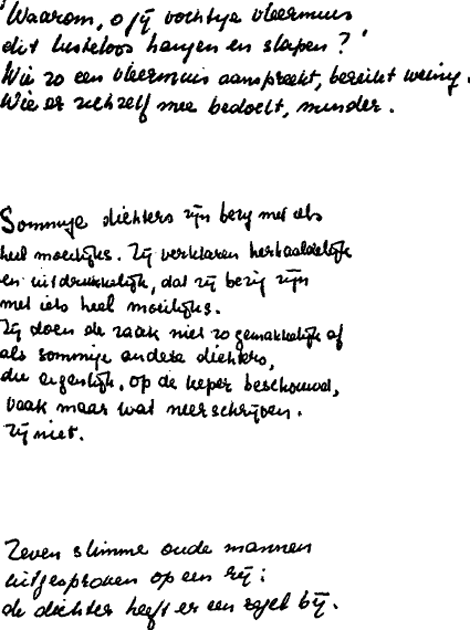 'Waarom, o jij vochtige vleermuis
dit lusteloos hangen en slapen?'
Wie zo een vleermuis aanspreekt, bereikt weinig.
Wie er zichzelf mee bedoelt, minder.
Sommige dichters zijn bezig met iets
heel moeilijks. Zij verklaren herhaaldelijk
en uitdrukkelijk, dat zij bezig zijn
met iets heel moeilijks.
Zij doen de zaak niet zo gemakkelijk af
als sommige andere dichters,
die eigenlijk, op de keper beschouwd,
vaak maar wat neerschrijven.
Zij niet.
Zeven slimme oude mannen
uitgesproken op een rij:
de dichter heeft er een regel bij.